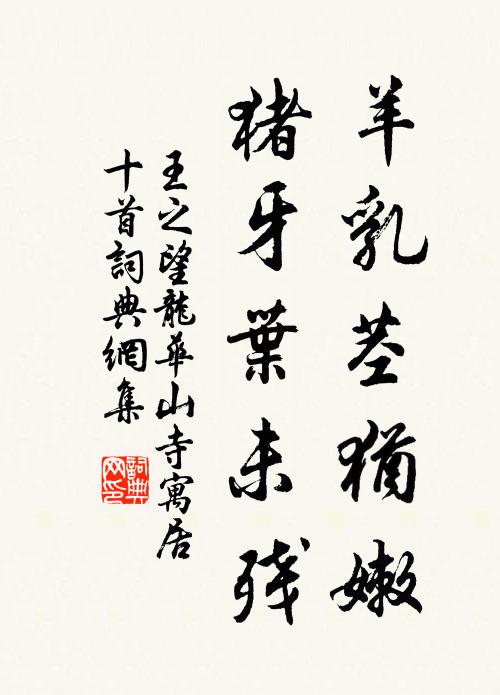 羊乳茎猶嫩
猪牙葉未残
王之望龍華山寺寓居
十首詞典網集
詞典
网印